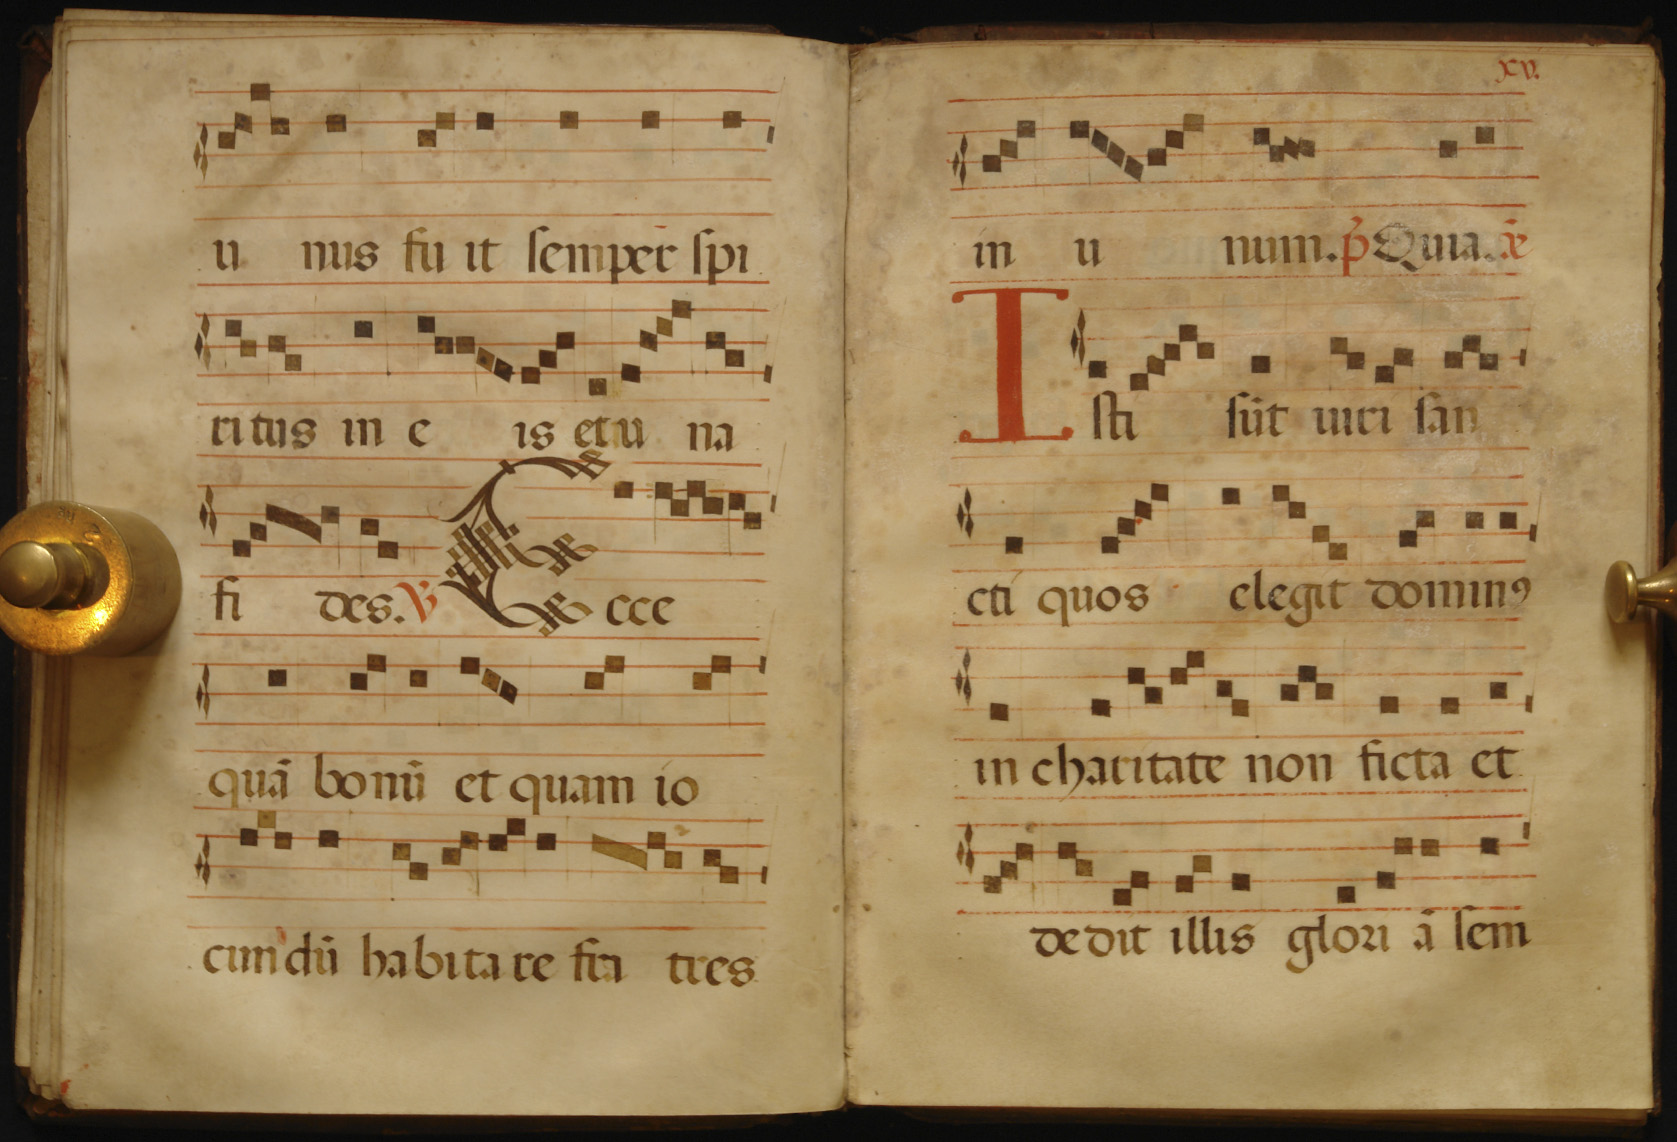 u nus fu it semper̄ spi
ritus in e is et u na
fi des. ℣ Ecce
quā bonū et quam io
cundū habitare fra tres
xv.
in u num. p̄ Quia. œ
Isti sūt uiri san
cti quos elegit dominꝰ
in charitate non ficta et
dedit illis glori ā sem